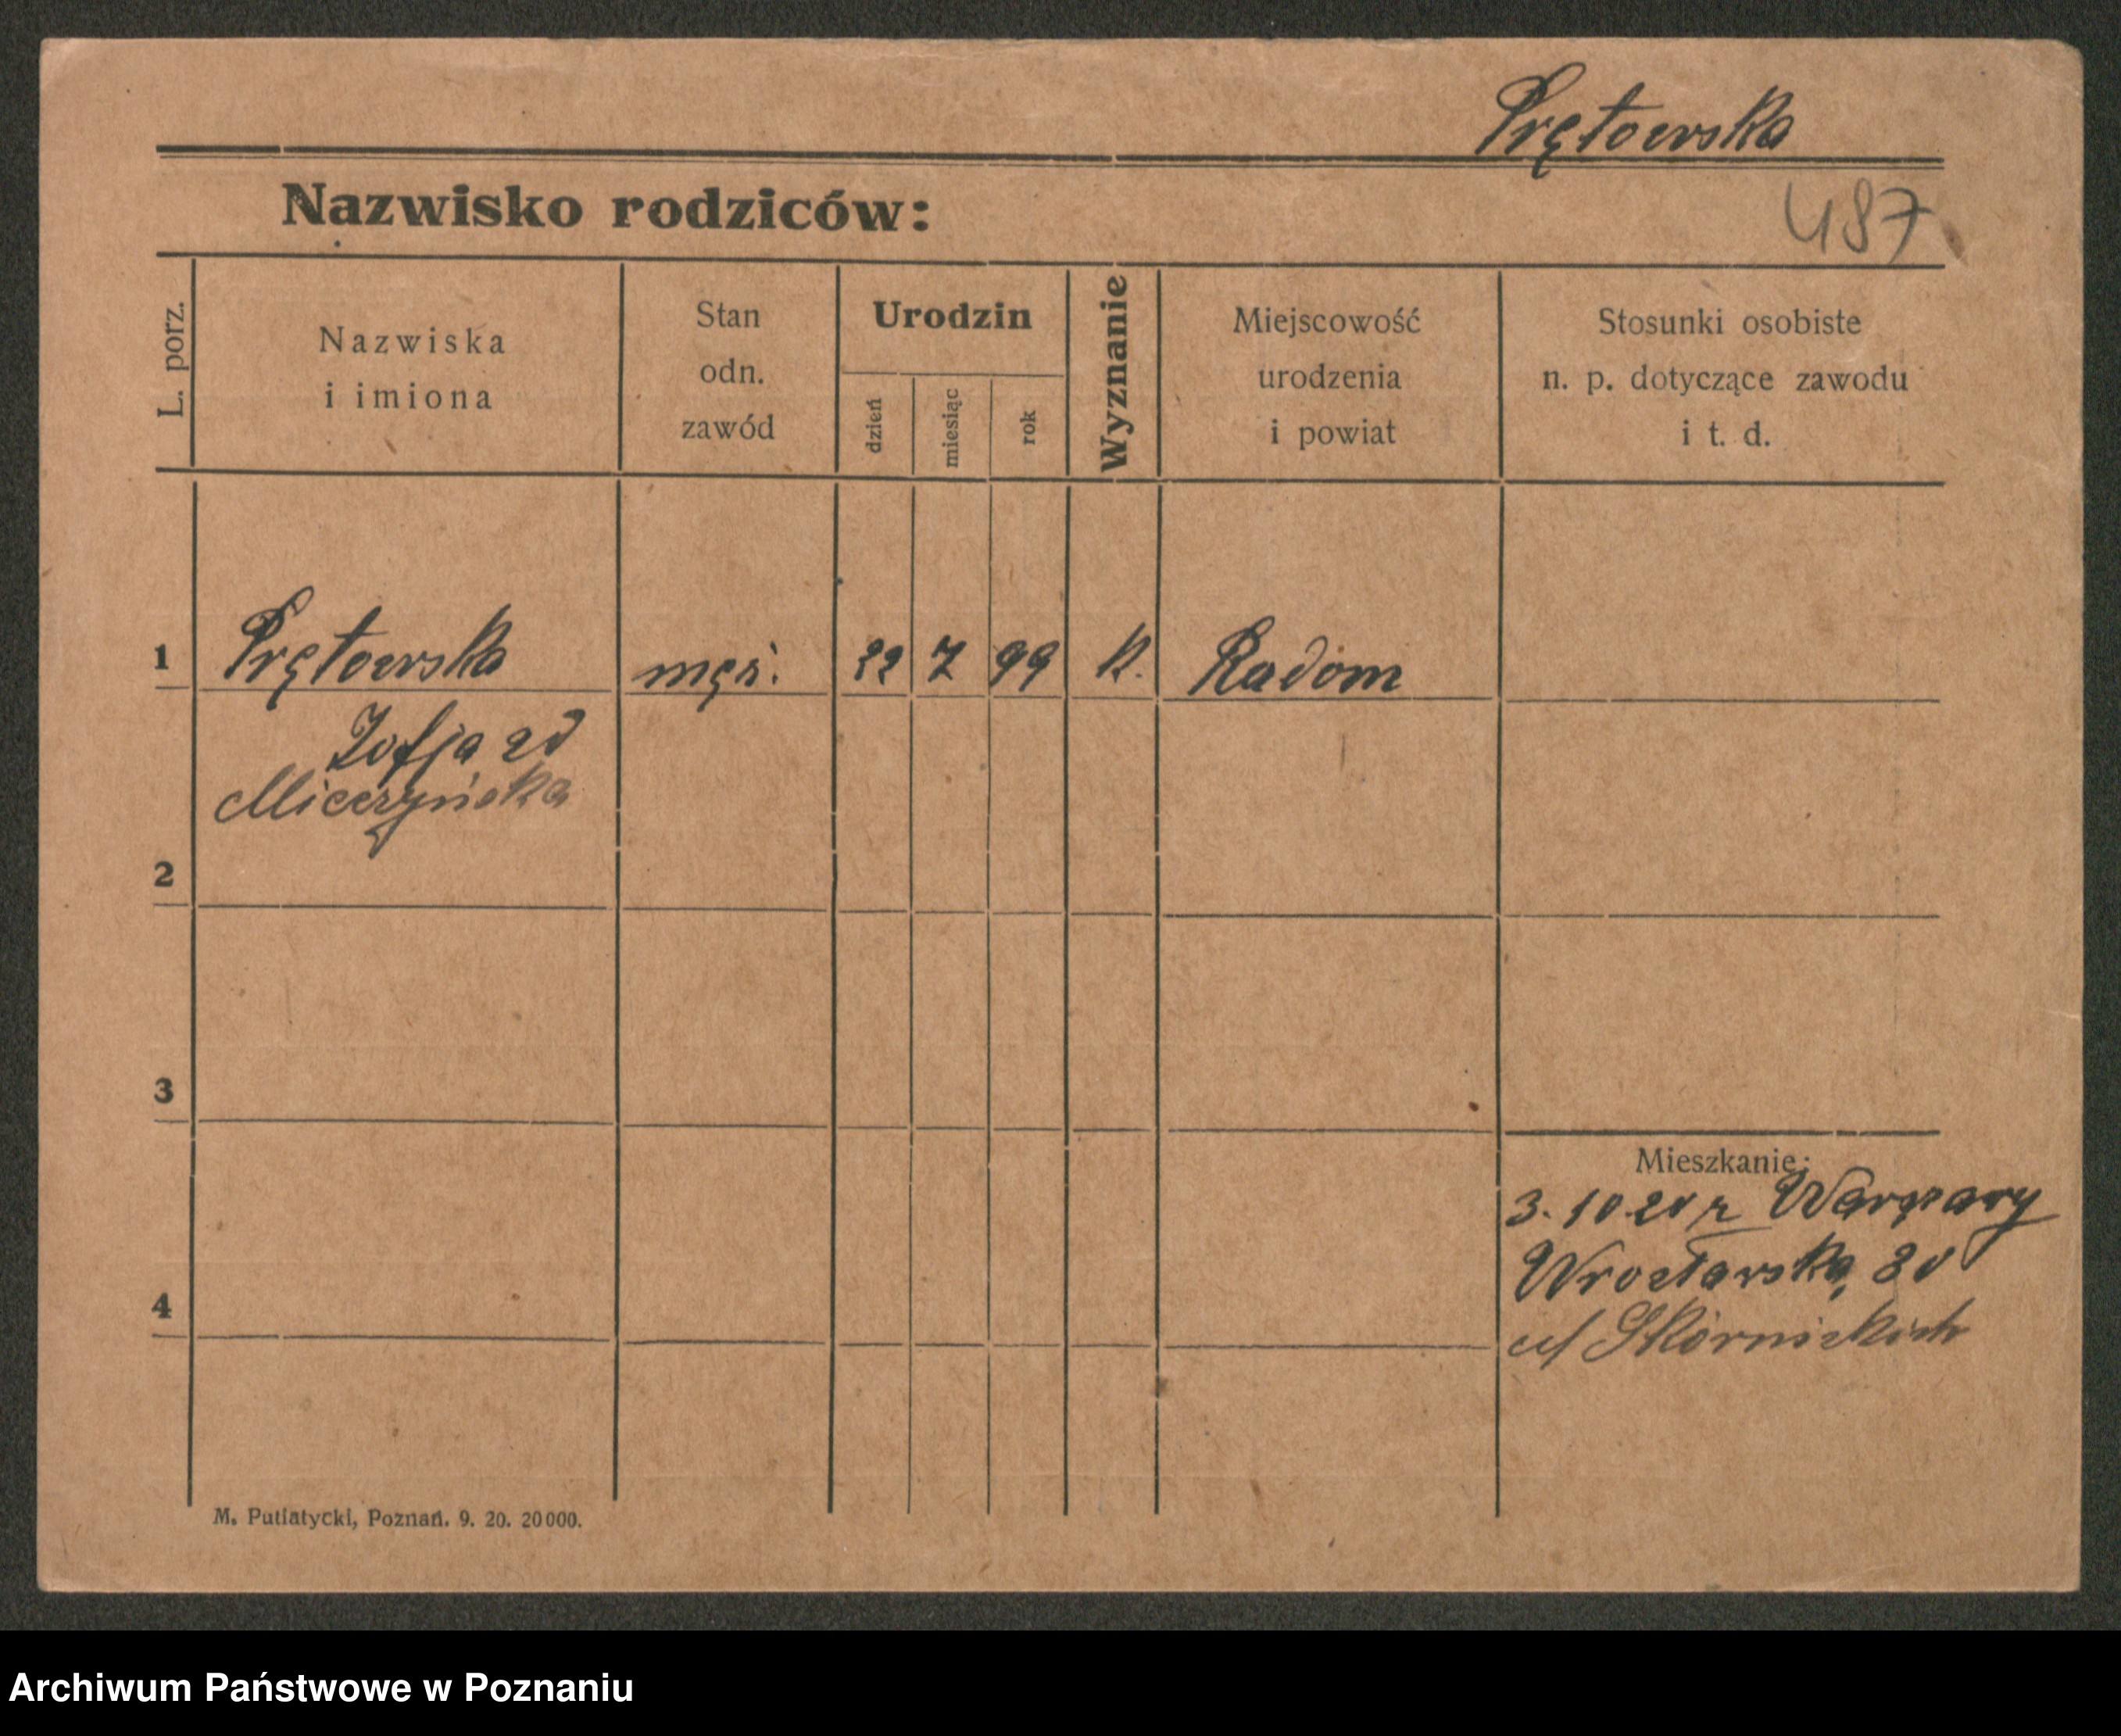 Prętowska
Nazwisko rodziców:
487
L. porz.
Nazwiska
i imiona
Stan
odn.
zawód
Urodzin
dzień
miesiąc
rok
Wyznanie
Miejscowość
urodzenia
i powiat
Stosunki osobiste
n. p. dotyczące zawodu
i t. d.
1 Prętowska męż. 22 7 99 K. Radom
Zofja
2
3
Mieszkanie:
3. 10. 20 z Warszawy
Wrocławska 30
4
M. Putiatycki, Poznań. 9. 20. 20000.
Archiwum Państwowe w Poznaniu